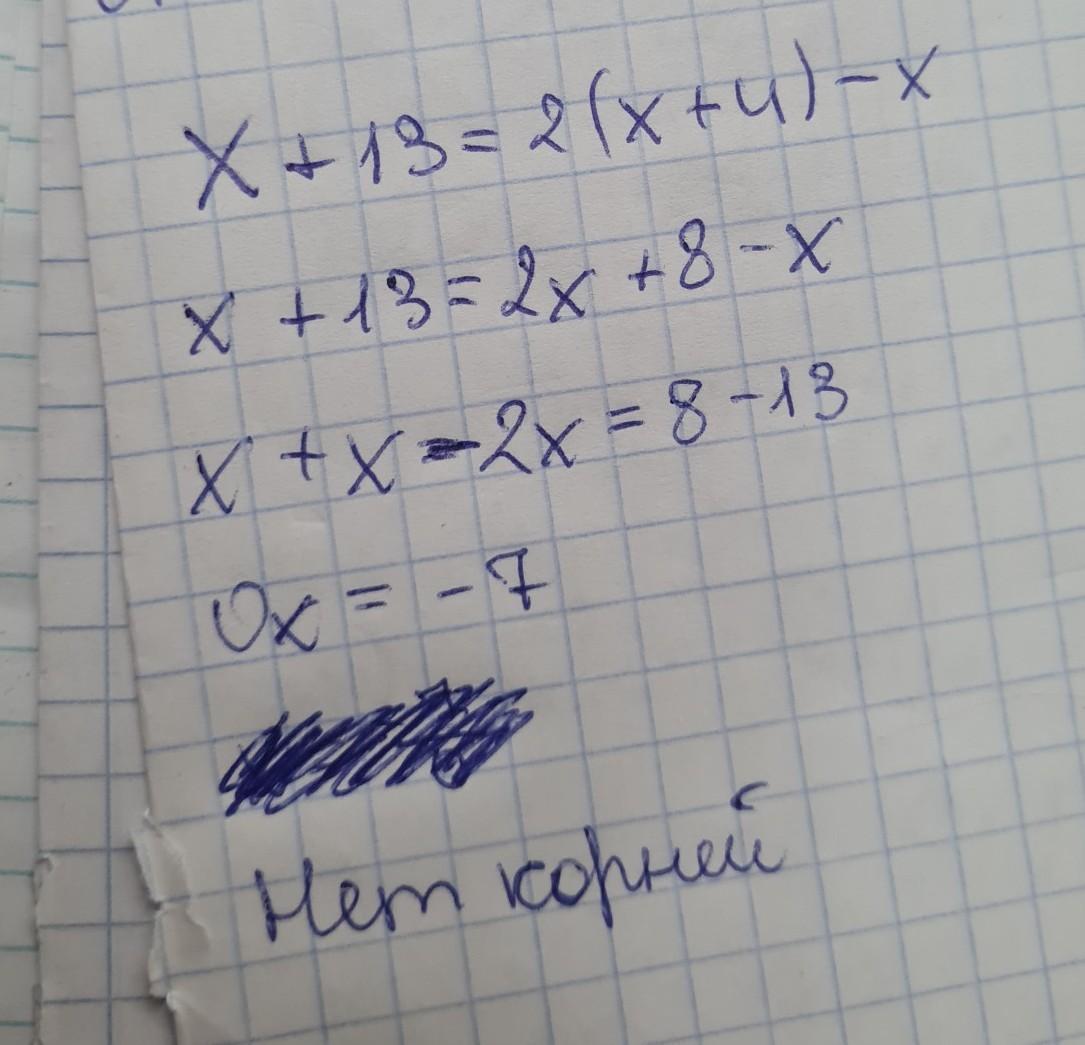 x + 13 = 2(x + 4) - x
x + 13 = 2x + 8 - x
x + x - 2x = 8 - 13
0x = - 7
Нет корней